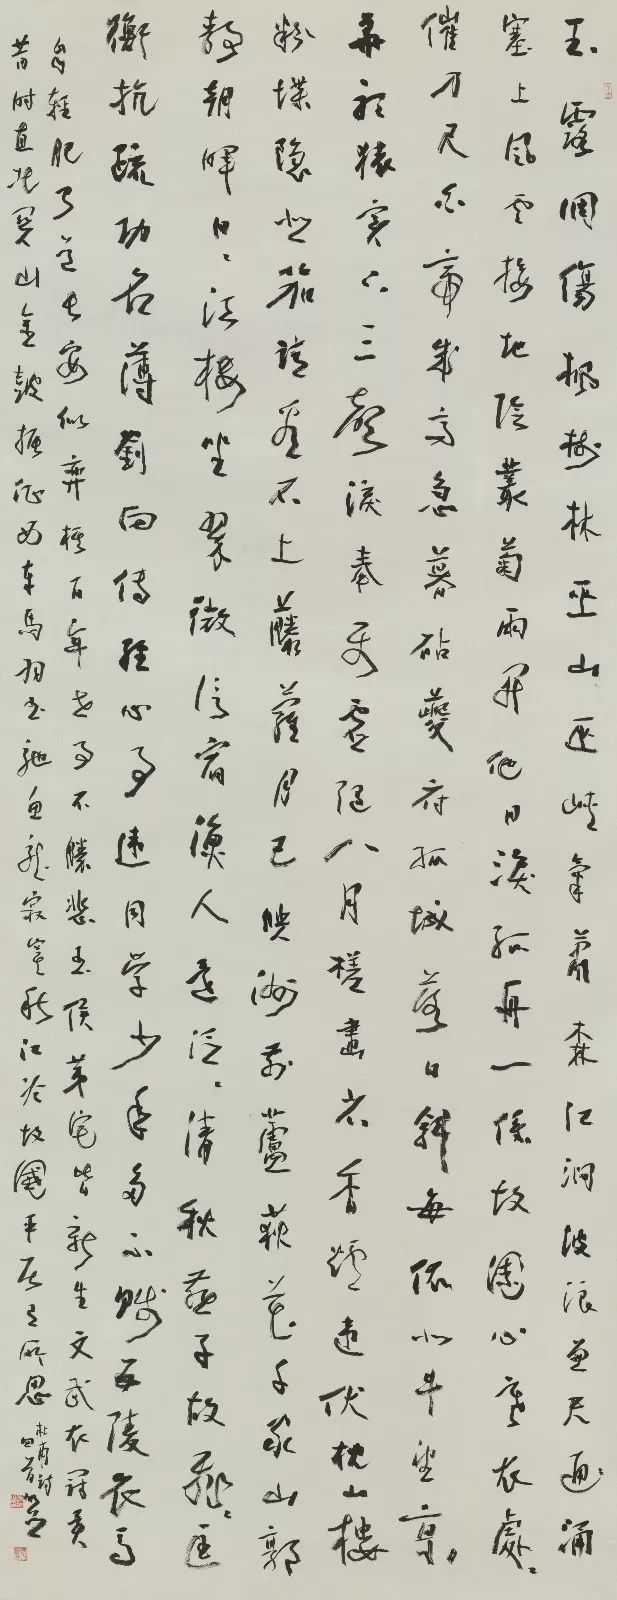 玉露凋傷楓樹林巫山巫峽氣蕭森江澗波浪兼天涌
塞上風雲接地陰叢菊兩開他日淚孤舟一係故園心寒衣處處
催刀尺白帝城高急暮砧夔府孤城落日斜每依北斗望京
華聽猿實下三聲淚奉使虛隨八月槎畫省香爐違伏枕山樓
粉堞隱悲笳請看石上藤蘿月已映洲前蘆荻花千家山郭
靜朝暉日日江樓坐翠微信宿漁人還泛泛清秋燕子故飛飛匡
衡抗疏功名薄劉向傳經心事違同學少年多不賤五陵衣馬
自輕肥聞道長安似弈棋百年世事不勝悲王侯第宅皆新主文武衣冠異
昔時直北關山金鼓振征西車馬羽書馳魚龍寂寞秋江冷故國平居有所思
杜甫詩
四首